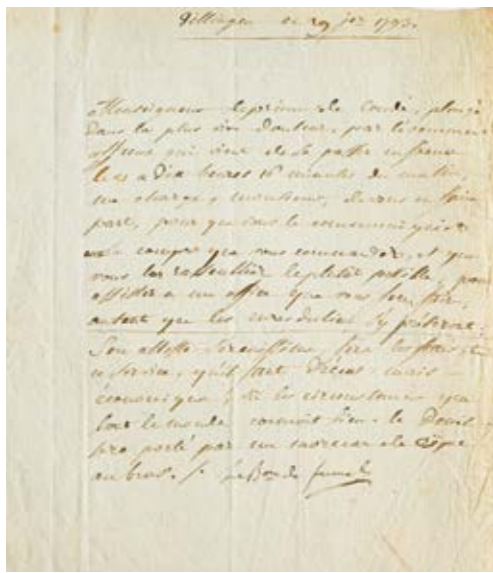 Villingen ce 29 jer 1793.
Monseigneur le prince de Condé, plongé
dans la plus vive douleur, par l'évènement
affreux qui vient de se passer en france
le 21 a dix heures minutes du matin,
me charge, monsieur, de vous en faire
part, pour que vous le communiquiés
compes que vous commandés, et que
vous les rassembliés le plutôt possible, pour
assister a un office que vous ferés faire,
autant que les localités s'y préteront.
Son altesse Serenissime fera les frais de
ce service, qu'il faut décent mais
économique, vu les circonstances que
tout le monde connoit bien. le Deuil
sera porté par un morceau de crêpe
au bras. /.